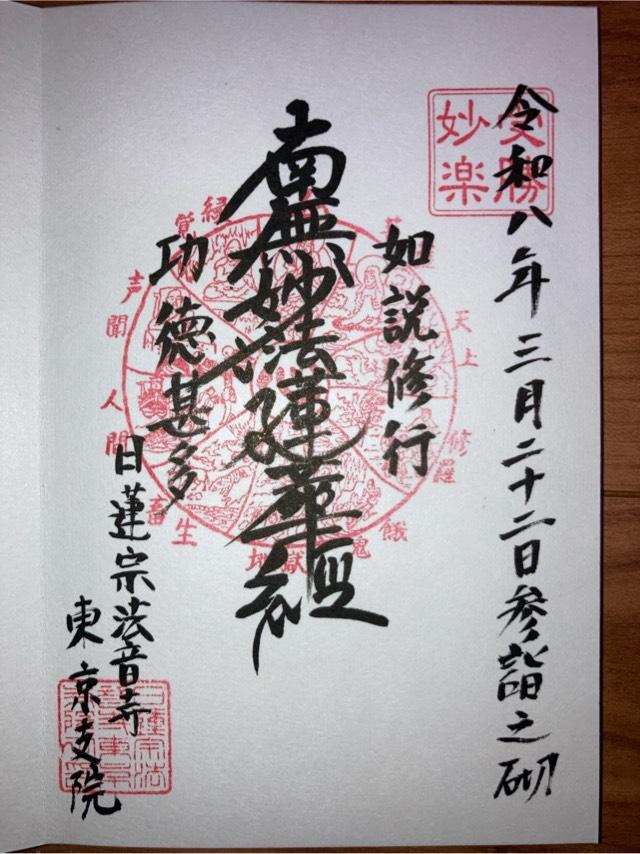 受勝
妙楽
令和八年三月二十二日参詣之砌
如説修行
南無妙法蓮華經
功徳甚多
日蓮宗法音寺
東京支院
天上
修羅
餓鬼
地獄
畜生
人間
声聞
縁覚